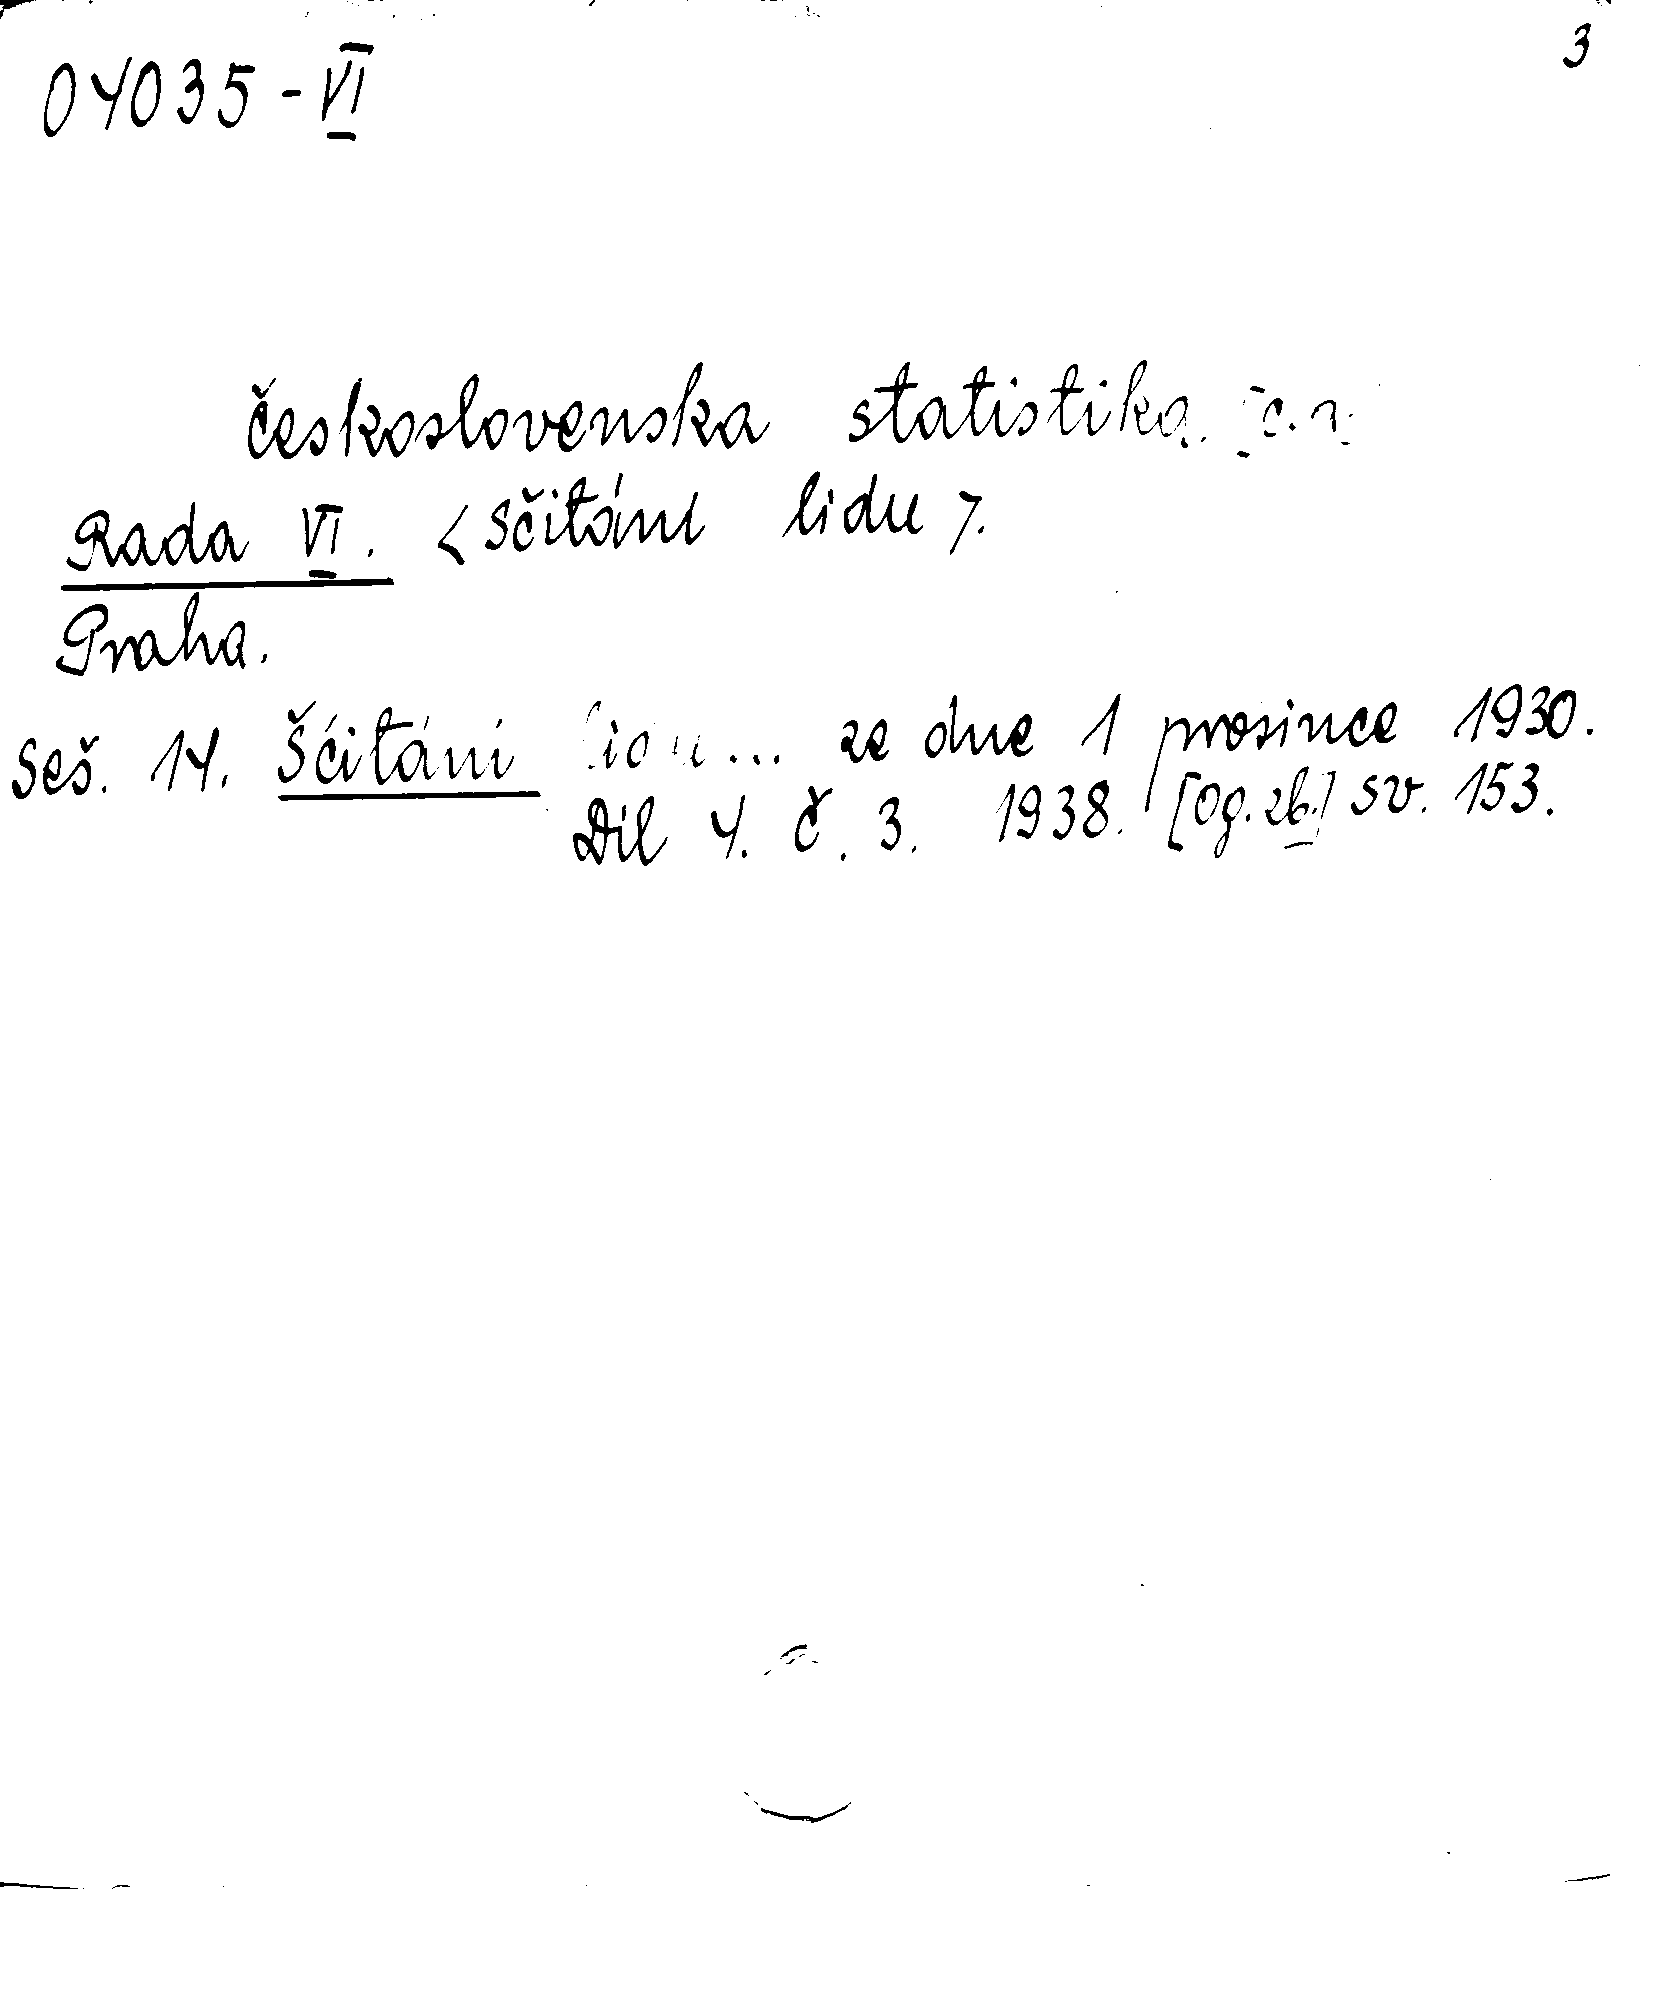 3
04035-VI
Československa statistika.
Rada VI. <sčitání lidu>.
Praha.
Seš. 14. Ščitání lidu... ze dne 1 prosince 1930.
Díl 4. č. 3. 1938. [Og. zb.] sv. 153.